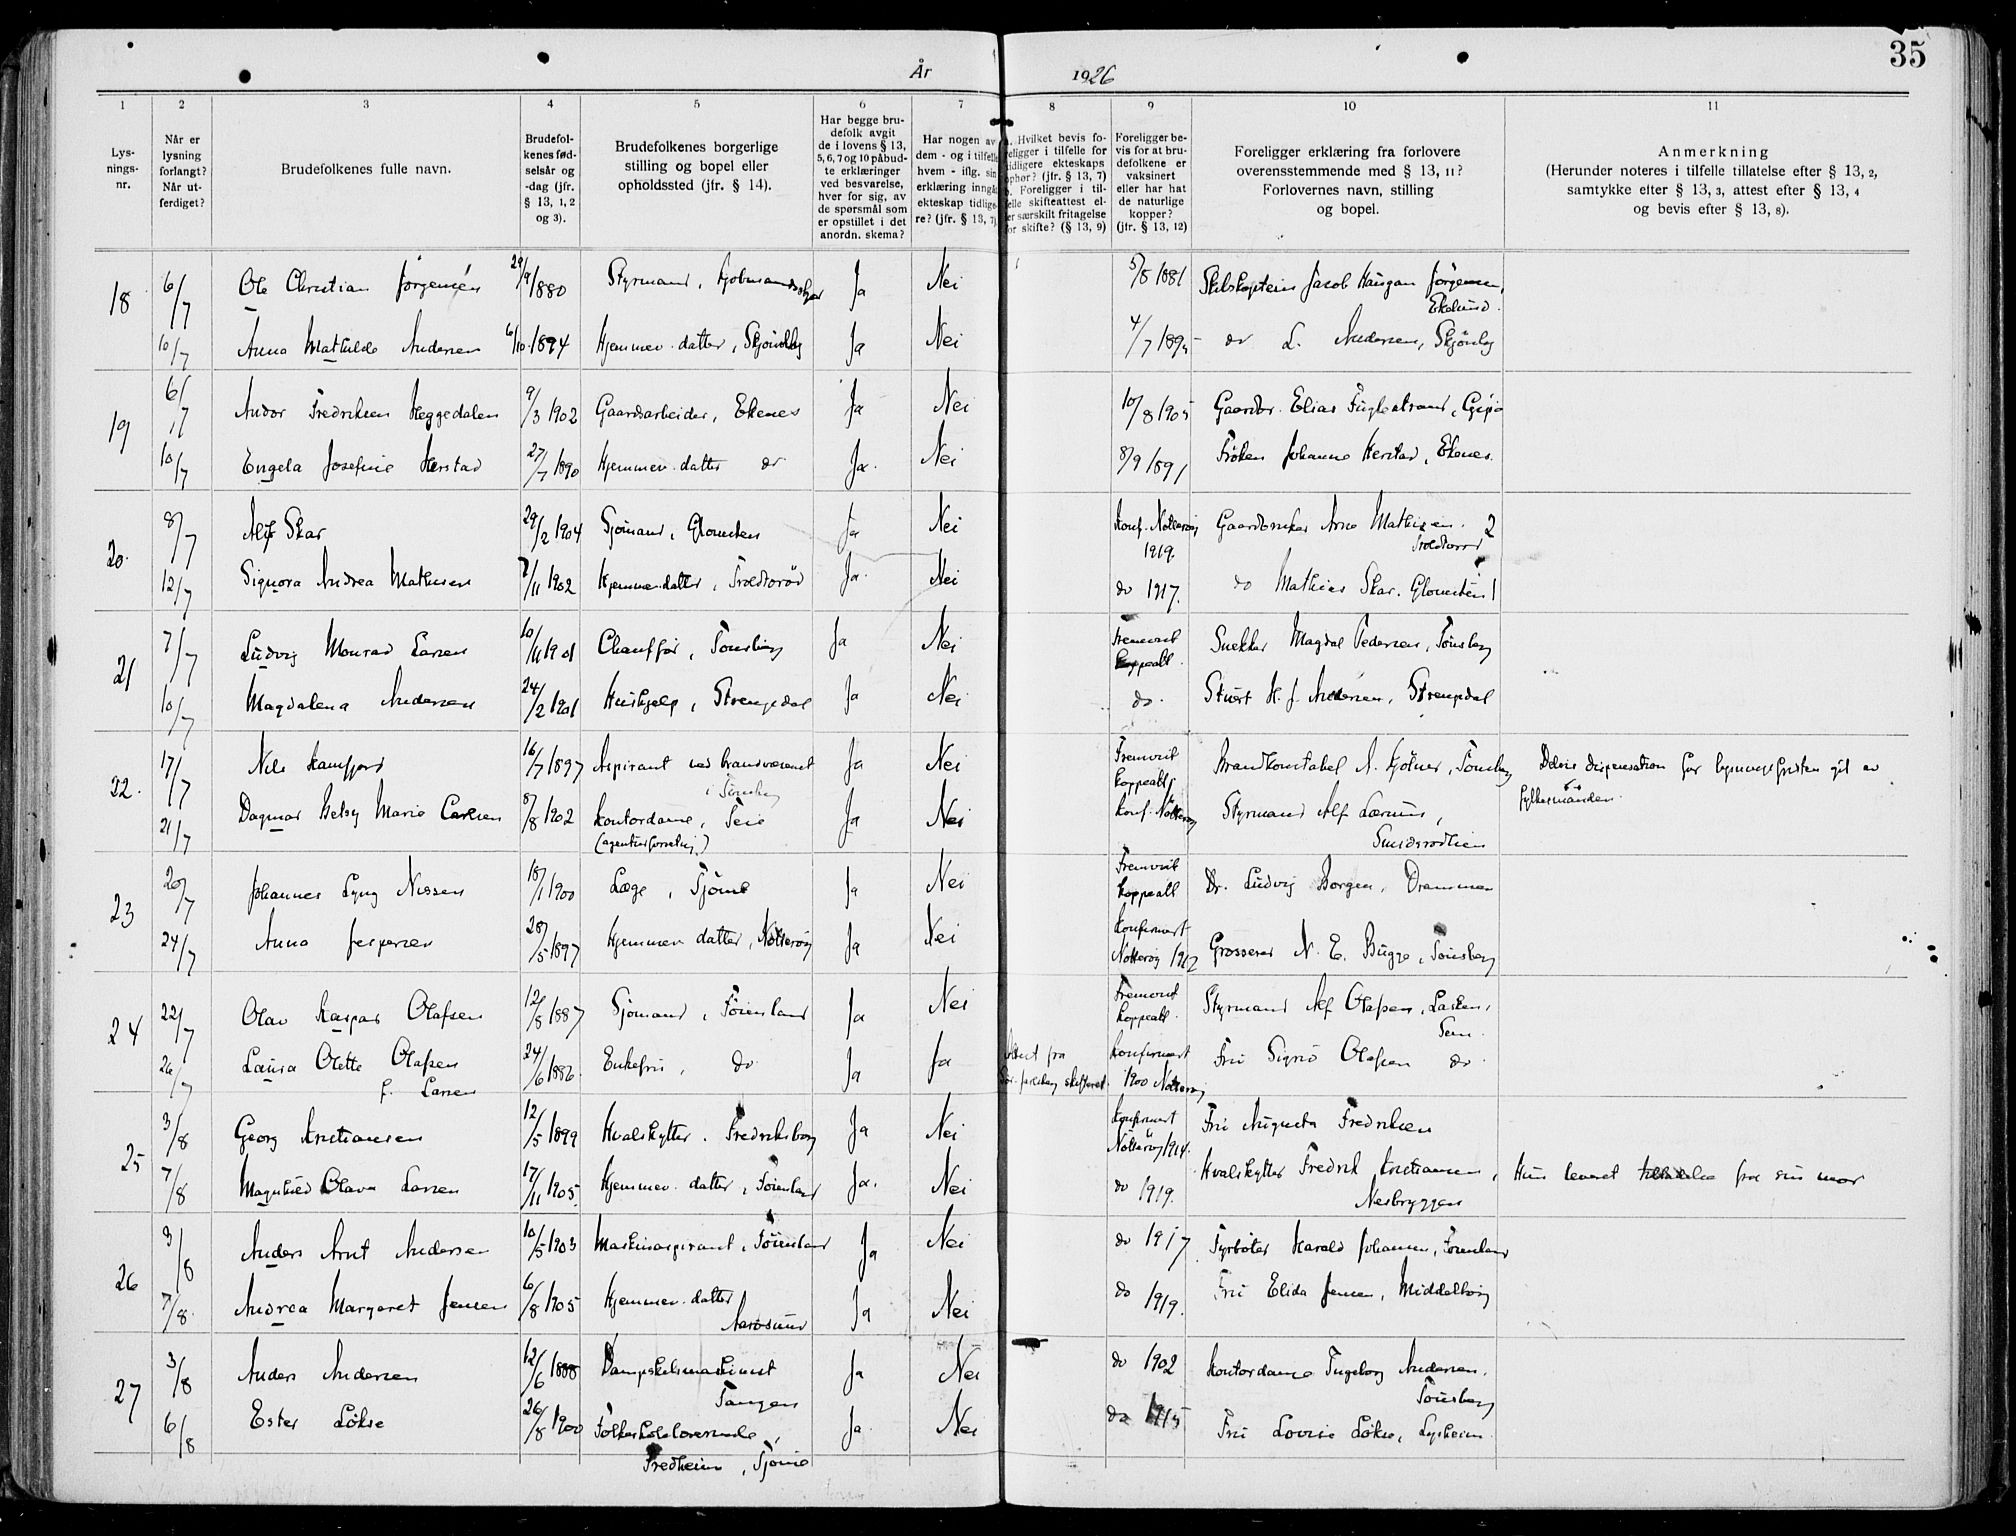 35
År 1926
1 2 3 4 5 6 7 8 9 10 11
Lysningsnr.
Når er lysning forlangt? Når utferdiget?
Brudefolkenes fulle navn.
Brudefolkenes fødselsår og -dag (jfr. § 13, 1, 2 og 3).
Brudefolkenes borgerlige stilling og bopel eller opholdssted (jfr. § 14).
Har begge brudefolk avgit de i lovens § 13, 5, 6, 7 og 10 påbudte erklæringer ved besvarelse, hver for sig, av de spørsmål som er opstillet i det anordn. skema?
Har nogen av dem - og i tilfelle hvem - iflg. sin erklæring inngåt ekteskap tidligere? (jfr. § 13, 7)
Hvilket bevis foreligger i tilfelle for tidligere ekteskaps ophør? (jfr. § 13, 7) Foreligger i tilfelle skifteattest eller særskilt fritagelse for skifte? (§ 13, 9)
Foreligger bevis for at brudefolkene er vaksinert eller har hat de naturlige kopper? (jfr. § 13, 12)
Foreligger erklæring fra forlovere overensstemmende med § 13, 11? Forlovernes navn, stilling og bopel.
Anmerkning (Herunder noteres i tilfelle tillatelse efter § 13, 2, samtykke efter § 13, 3, attest efter § 13, 4 og bevis efter § 13, 8).
18 6/7 Ole Christian Jørgensen 29/9 1880 Styrmand, Ja Nei 5/8 1881 Skibskaptein Jacob Haugan Jørgensen, Ekelund.
10/7 Anna Mathilde Andersen 6/10 1894 Hjemmev. datter, Ja Nei 4/7 1895 do L. Andersen,
19 6/7 Andor Fredriksen Heggedalen 9/3 1902 Gaardsarbeider, Ekenes Ja Nei 10/8 1905 Gaardbr. Elias Fuglestrand,
10/7 Engela Josefine Herstad 27/7 1890 Hjemmev. datter do Ja. Nei 8/9 1891 Frøken Johanne Herstad, Ekenes.
20. 8/7 Alf Skar 29/2 1904 Sjømand, Glomsten Ja Nei Konf. Nøtterøy 1919. Gaardbruker Arne Mathisen. 2
12/7 Signora Andrea Mathisen 7/11 1902 Hjemmev. datter, Ja. Nei do 1917. do Mathias Skar. Glomsten 1
21 7/7 Ludvig Monrad Larsen 10/11 1901 Chauffør, Tønsberg Ja Nei Fremvist koppeatt. Snekker Magdal Pedersen, Tønsberg
10/7 Magdalena Andersen 24/2 1901 Hushjelp, Strengsdal Ja Nei do. Stuert H. J. Andersen, Strengsdal
22. 17/7 Nils Kamfjord 16/7 1897 Aspirant ved brandvæsenet i Tønsberg Ja Nei Fremvist koppeatt. Brandkonstabel A. Kjølner, Tønsberg Delvis dispensation for lysningsfristen git av fylkesmanden.
21/7 Dagmar Betsy Marie Carlsen 8/8 1902 Kontordame, Teie (agenturforretnig.) Ja Nei Konf. Nøtterøy Styrmand Alf Lærum, Smidsrødlien
23 20/7 Johannes Lyng Nissen 18/1 1900 Læge, Tjøme Ja Nei Fremvist koppeatt Dr. Ludvig Borgen, Drammen
24/7 Anna Jespersen 28/5 1897 Hjemmev datter, Nøtterøy Ja Nei Konfirmert Nøtterøy 1912 Grosserer N. E. Bugge, Tønsberg
24 22/7 Olav Kaspar Olafsen 12/8 1887 Sjømand, Føienland Ja Nei Fremvist koppeatt. Styrmand Alf Olafsen, Lasken, Sem.
26/7 Laura Olette Olafsen f. Larsen 24/6 1886. Enkefru, do Ja Ja Attest fra skifteret. Konfirmert 1900 Nøtterøy Fru Signe Olafsen do.
25 3/8 Georg Kristiansen 12/5 1899 Hvalskytter. Fredriksborg Ja Nei Konfirmert Nøtterøy 1914. Fru Augusta Fredriksen
7/8 Magnhild Olava Larsen 17/11 1905. Hjemmev. datter, Føienland Ja. Nei do 1919. Hvalskytter Fredrik Kristiansen, Nesbryggen Hun leveret tillatelse fra sin mor
26 3/8 Anders Arnt Andersen 10/5 1903 Maskinaspirant, Føienland Ja Nei do 1917 Fyrbøter Harald Johansen, Føienland
7/8. Andrea Margaret Jensen 6/8 1905 Hjemmev. datter Aarøsund Ja Nei do 1919. Fru Elida Jensen, Middelborg
27 3/8 Anders Andersen 12/6 1888 Dampskibsmaskinist Tangen Ja Nei do 1902 Kontordame Ingeborg Andersen. Tønsberg
6/8 Ester Løkse 26/8 1900 Folkeskolelærerinde, Fredheim, Tjøme Ja. Nei do 1915 Fru Lovise Løkse, Lysheim.